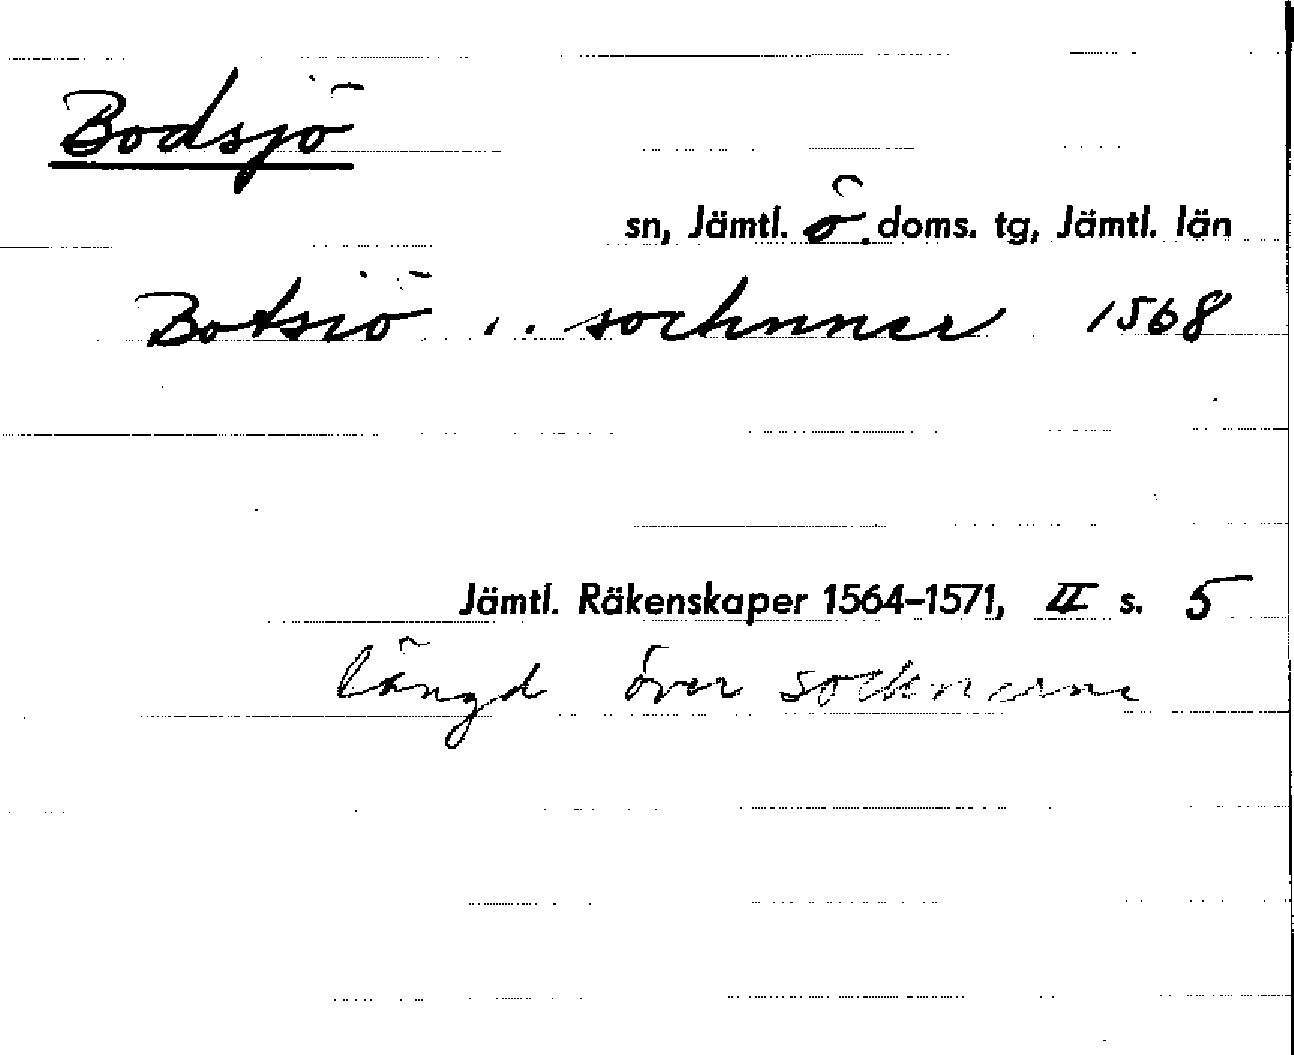 Bodsjö
sn, Jämtl. ö. doms. tg, Jämtl. län
Botsiö .. sochnner 1568
Jämtl. Räkenskaper 1564–1571, II s. 5
längd över socknarna